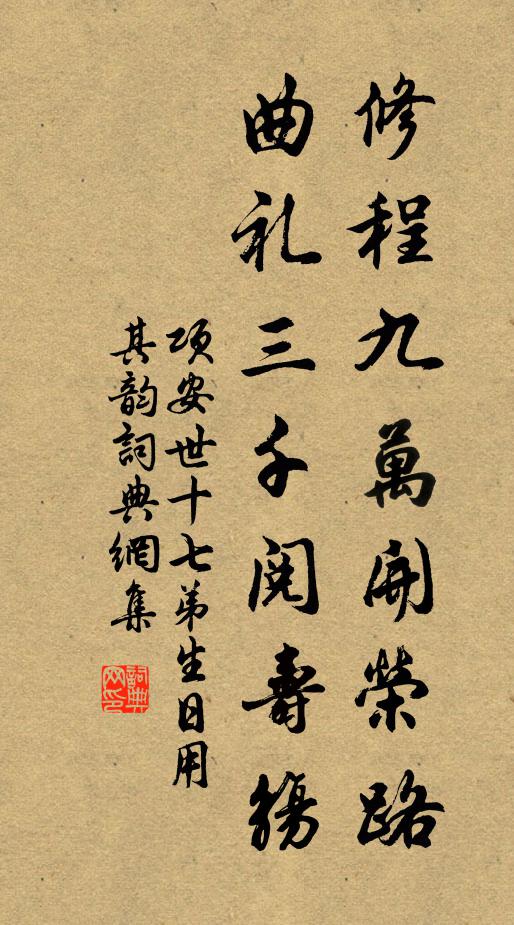 修程九萬開榮路
曲礼三千閱壽觴
项安世十七弟生日用
其韵詞典網集
詞典网印